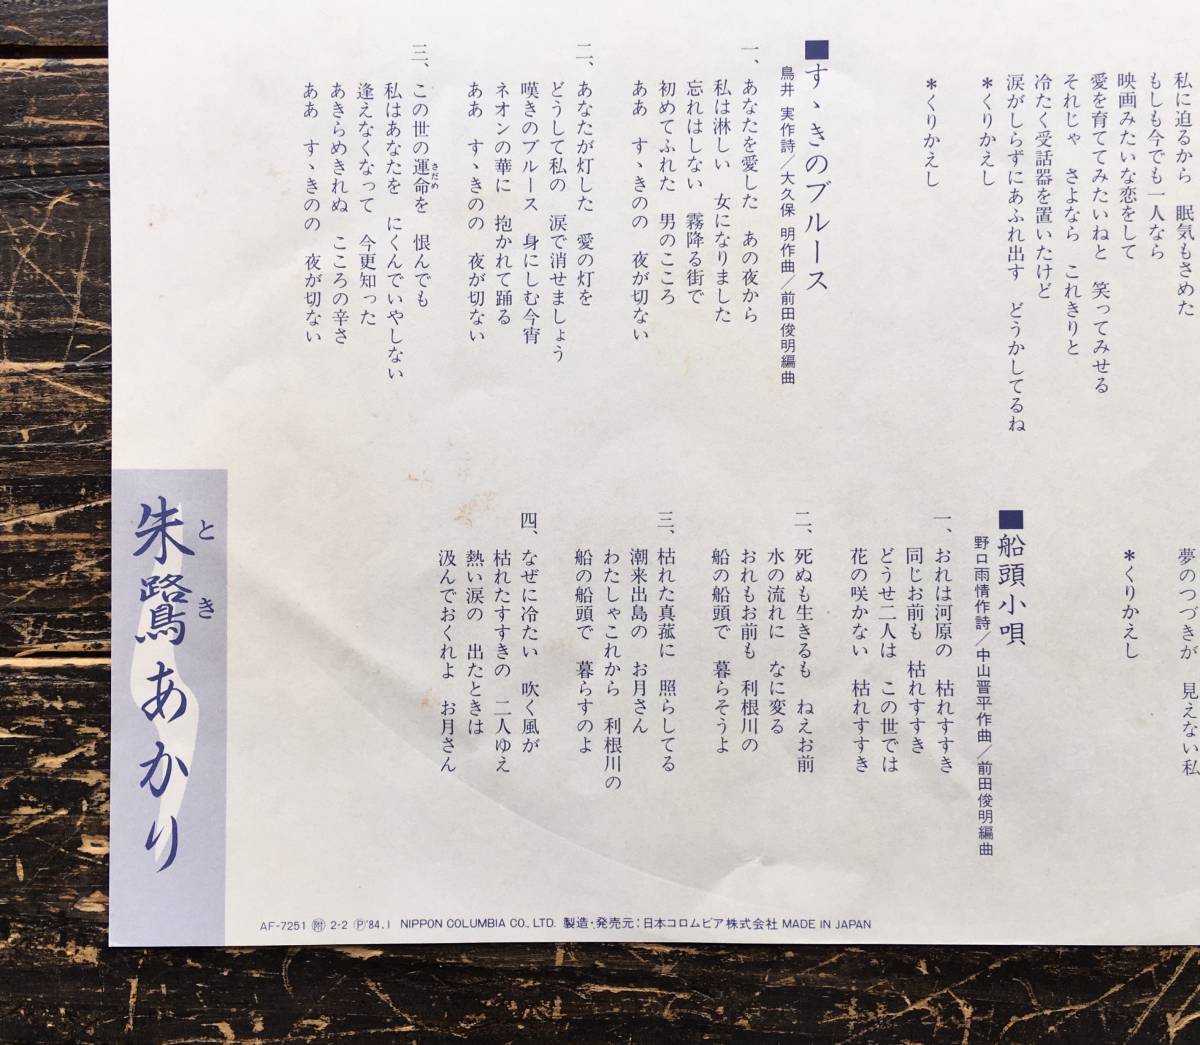 私に迫るから　眠気もさめた
もしも今でも一人なら
映画みたいな恋をして
愛を育ててみたいねと　笑ってみせる
それじゃ　さよなら　これきりと
冷たく受話器を置いたけど
涙がしらずにあふれ出す　どうかしてるね
＊くりかえし
＊くりかえし
■すゝきのブルース
鳥井 実作詩／大久保 明作曲／前田俊明編曲
一、あなたを愛した　あの夜から
私は淋しい　女になりました
忘れはしない　霧降る街で
初めてふれた　男のこころ
ああ　すゝきのの　夜が切ない
二、あなたが灯した　愛の灯を
どうして私の　涙で消せましょう
嘆きのブルース　身にしむ今宵
ネオンの華に　抱かれて踊る
ああ　すゝきのの　夜が切ない
三、この世の運命を　恨んでも
きだめ
私はあなたを　にくんでいやしない
逢えなくなって　今更知った
あきらめきれぬ　こころの辛さ
ああ　すゝきのの　夜が切ない
夢のつづきが　見えない私
＊くりかえし
■船頭小唄
野口雨情作詩／中山晋平作曲／前田俊明編曲
一、おれは河原の　枯れすすき
同じお前も　枯れすすき
どうせ二人は　この世では
花の咲かない　枯れすすき
二、死ぬも生きるも　ねえお前
水の流れに　なに変る
おれもお前も　利根川の
船の船頭で　暮らそうよ
三、枯れた真菰に　照らしてる
潮来出島の　お月さん
わたしゃこれから　利根川の
船の船頭で　暮らすのよ
四、なぜに冷たい　吹く風が
枯れたすすきの　二人ゆえ
熱い涙の　出たときは
汲んでおくれよ　お月さん
朱鷺あかり
とき
AF-7251 附 2-2 Ⓟ'84.1 NIPPON COLUMBIA CO., LTD. 製造・発売元：日本コロムビア株式会社 MADE IN JAPAN